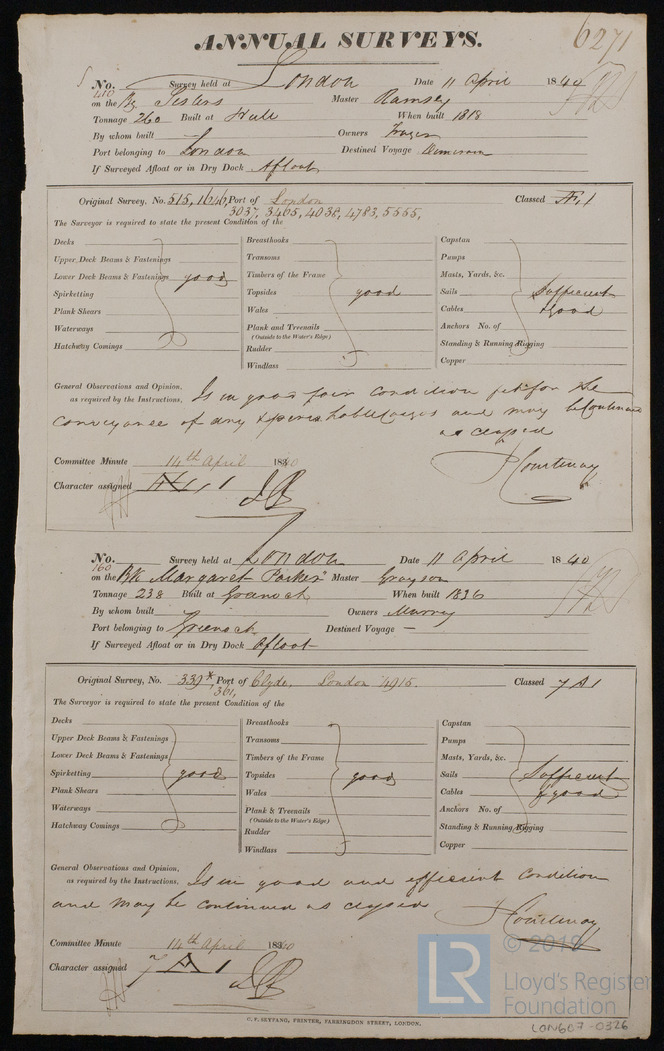 ANNUAL SURVEYS. 6271
No. Survey held at London Date 11 April 1840
410
on the Bg Sisters Master Ramsey
Tonnage 260 Built at Hull When built 1818
By whom built Owners Frazer
Port belonging to London Destined Voyage
If Surveyed Afloat or in Dry Dock Afloat
Original Survey, No. 515, 1646, Port of London Classed Æ 1
3037, 3465, 4038, 4783, 5555,
The Surveyor is required to state the present Condition of the
Decks Breasthooks Capstan
Upper Deck Beams & Fastenings Transoms Pumps
Lower Deck Beams & Fastenings good Timbers of the Frame Masts, Yards, &c.
Spirketting Topsides good Sails Sufficient
Plank Shears Wales Cables & good
Waterways Plank and Treenails Anchors No. of
(Outside to the Water's Edge)
Hatchway Comings Rudder Standing & Running Rigging
Windlass Copper
General Observations and Opinion, Is in good fair condition fit for the
as required by the Instructions.
conveyance of dry & perishable cargoes and may be continued
as classed
Committee Minute 14th April 1840 Courtenay
Character assigned Æ 1
No. Survey held at London Date 11 April 1840
160
on the Bk "Margaret Parker" Master Grayson
Tonnage 238 Built at Greenock When built 1836
By whom built Owners Murray
Port belonging to Greenock Destined Voyage —
If Surveyed Afloat or in Dry Dock Afloat
Original Survey, No. 339* Port of Clyde, London 4915. Classed 7 A 1
361,
The Surveyor is required to state the present Condition of the
Decks Breasthooks Capstan
Upper Deck Beams & Fastenings Transoms Pumps
Lower Deck Beams & Fastenings Timbers of the Frame Masts, Yards, &c.
Spirketting good Topsides good Sails Sufficient
Plank Shears Wales Cables & good
Waterways Plank & Treenails Anchors No. of
(Outside to the Water's Edge)
Hatchway Comings Rudder Standing & Running Rigging
Windlass Copper
General Observations and Opinion, Is in good and efficient condition
as required by the Instructions.
and may be continued as classed
Courtenay
Committee Minute 14th April 1840
Character assigned 7 A 1
C. F. SEYFANG, PRINTER, FARRINGDON STREET, LONDON.
LR © 2019
Lloyd's Register
Foundation
LON607-0326